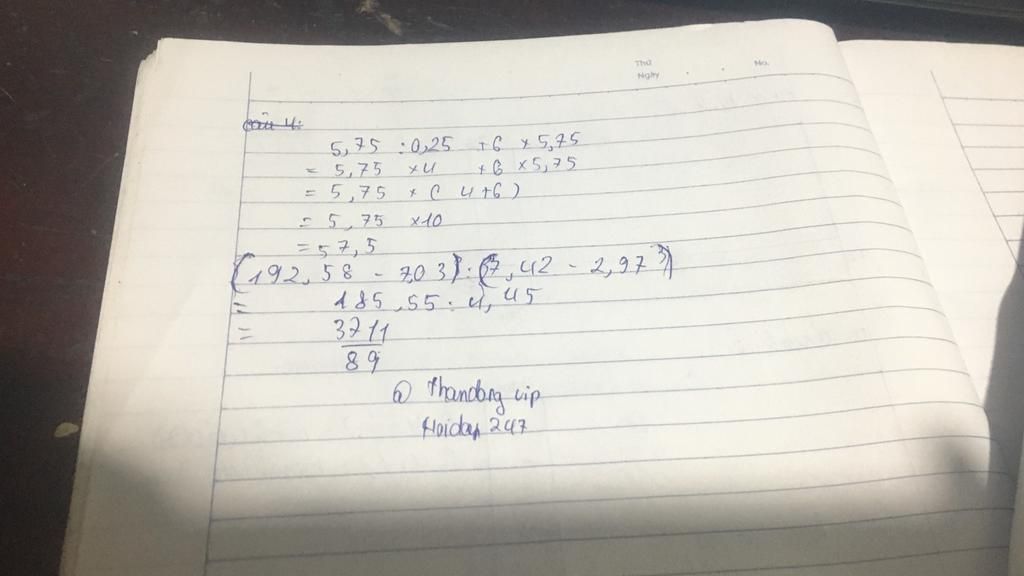 Thứ No.
Ngày . .
Câu 4:
5,75 : 0,25 + 6 × 5,75
= 5,75 × 4 + 6 × 5,75
= 5,75 × ( 4 + 6 )
= 5,75 × 10
= 57,5
(192,58 - 7,03) : (7,42 - 2,97)
= 185,55 : 4,45
= 3711
89
@ Thandong vip
Hoidap 247